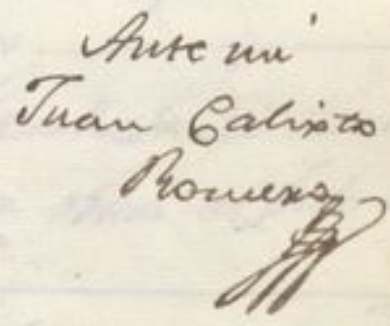 Ante mí
Juan Calixto
Romero